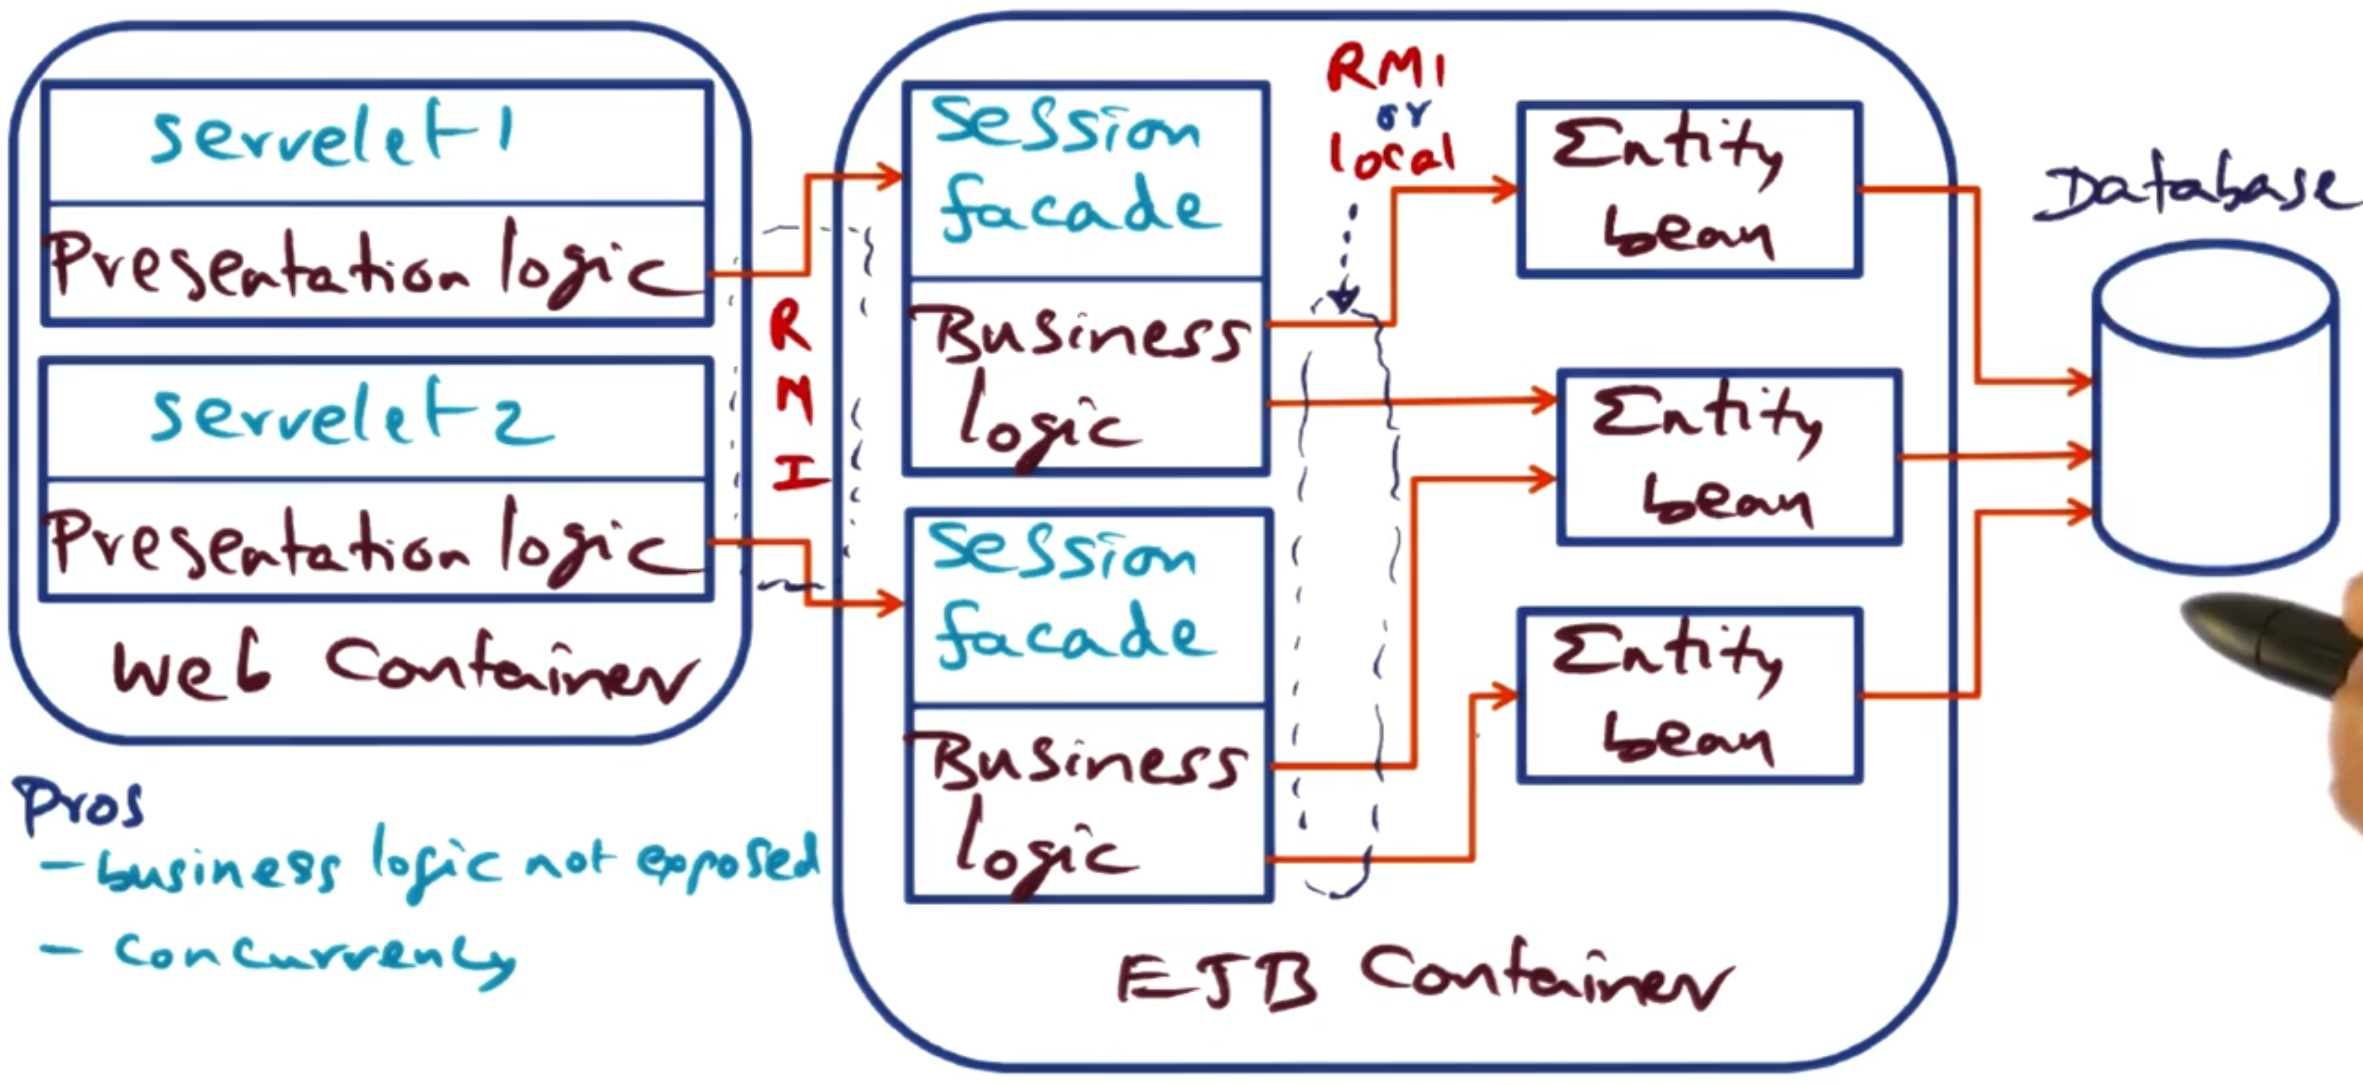 servelet 1
Presentation logic
servelet 2
Presentation logic
Web Container
R
M
I
Session
facade
Business
logic
Session
facade
Business
logic
RMI
or
local
Entity
bean
Entity
bean
Entity
bean
EJB Container
Database
Pros
- business logic not exposed
- Concurrency